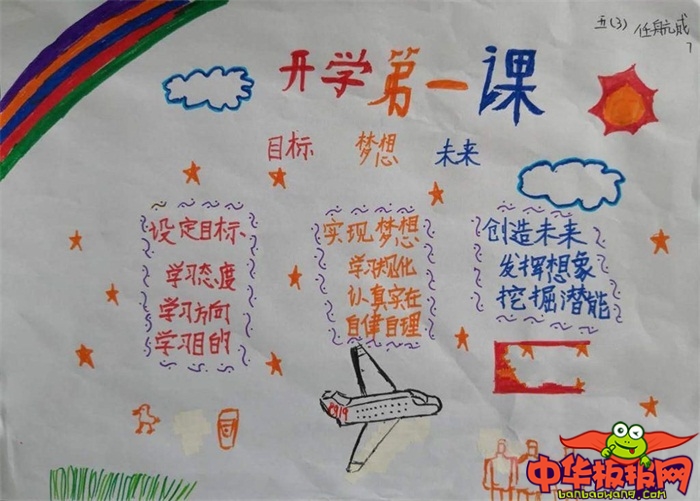 五(3) 任航成
7
开学第一课
目标 梦想 未来
设定目标
学习态度
学习方向
学习目的
实现梦想
学习规化
认真实在
自律自理
创造未来
发挥想象
挖掘潜能
C919
中华板报网
banbaowang.com